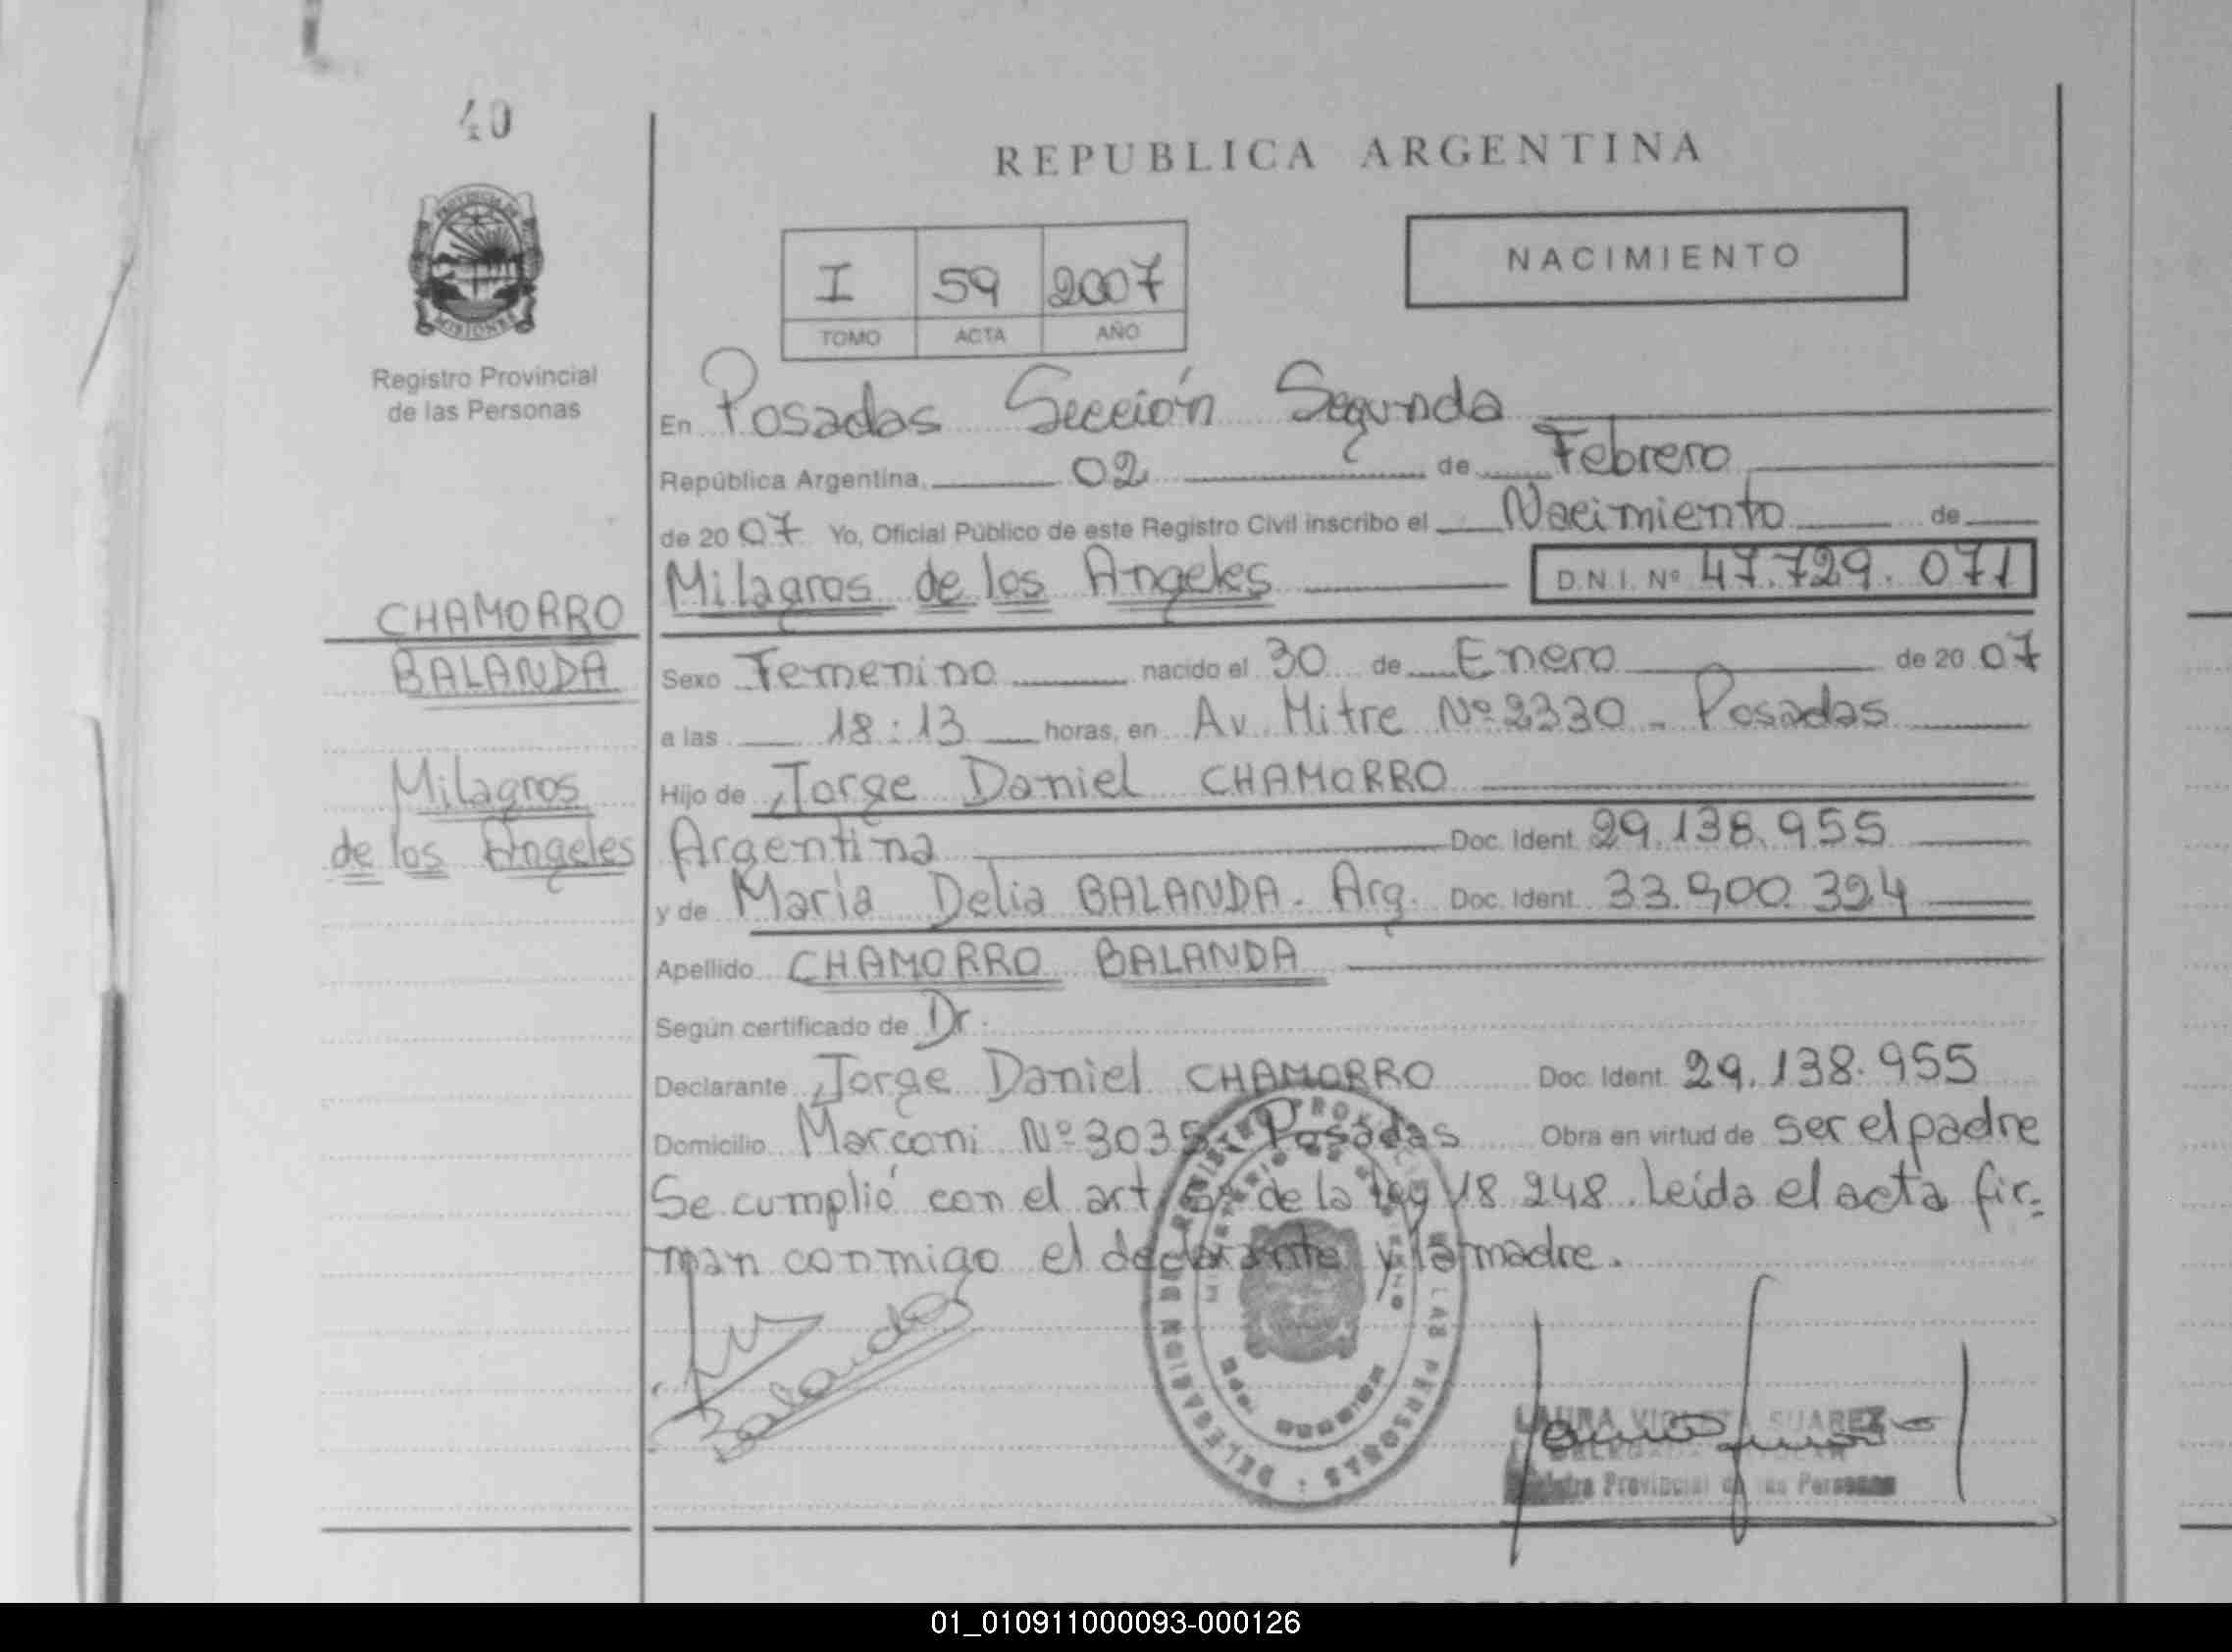 40
PROVINCIA DE
MISIONES
Registro Provincial
de las Personas
REPUBLICA ARGENTINA
I 59 2007
TOMO ACTA AÑO
NACIMIENTO
En Posadas Sección Segunda
República Argentina, 02 de Febrero
de 2007 Yo, Oficial Público de este Registro Civil inscribo el Nacimiento de
Milagros de los Angeles D.N.I. Nº 47.729.071
CHAMORRO
BALANDA
Milagros
de los Angeles
Sexo Femenino nacido el 30 de Enero de 2007
a las 18:13 horas, en Av. Mitre Nº 2330 - Posadas
Hijo de Jorge Daniel CHAMORRO
Argentina Doc. Ident. 29.138.955
y de María Delia BALANDA. Arg. Doc. Ident. 33.900.324
Apellido CHAMORRO BALANDA
Según certificado de Dr.
Declarante Jorge Daniel CHAMORRO Doc. Ident. 29.138.955
Domicilio Marconi Nº 3035 Posadas Obra en virtud de ser el padre
Se cumplió con el art de la Ley 18.248. Leída el acta fir-
man conmigo el declarante y la madre.
Balanda
DELEGACION DE REGISTRO PROVINCIAL DE LAS PERSONAS
MISIONES
LAURA VIOLETA SUAREZ
Registro Provincial de las Personas
01_010911000093-000126